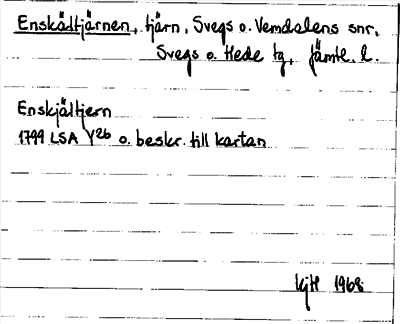 Enskådtjärnen, tjärn, Svegs o. Vemdalens snr,
Svegs o. Hede tg, Jämtl. l.
Enskjåltjern
1799 LSA Y26 o. beskr. till kartan
1968